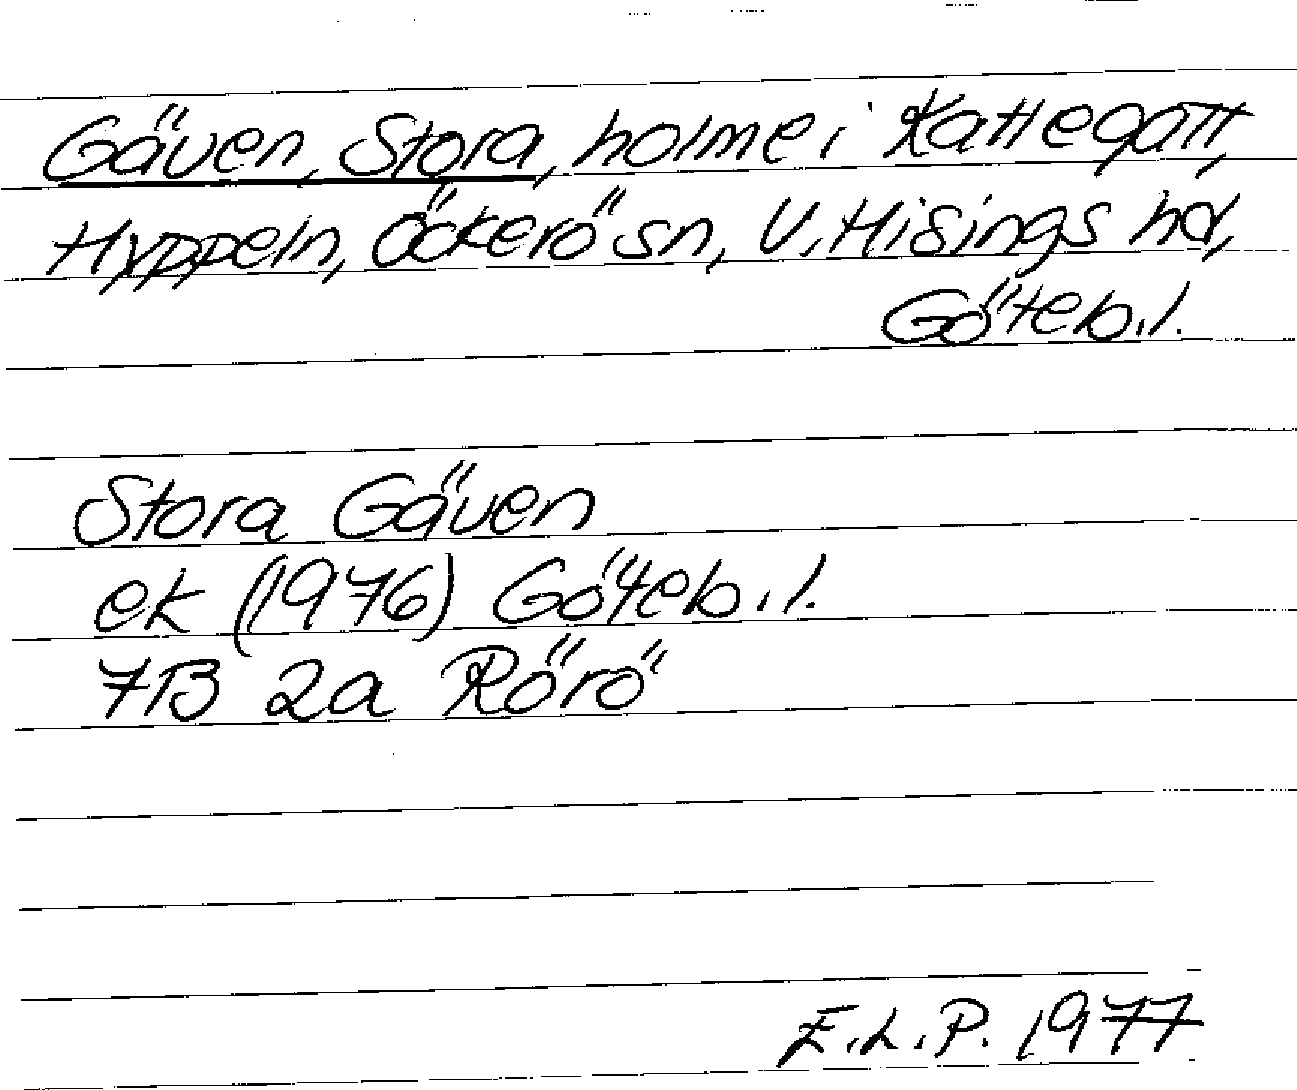 Gäven, Stora, holme i Kattegatt,
Hyppeln, Öckerö sn, V. Hisings hd,
Göteb. l.
Stora Gäven
ek (1976) Göteb. l.
7B 2a Rörö
E.L.P. 1977